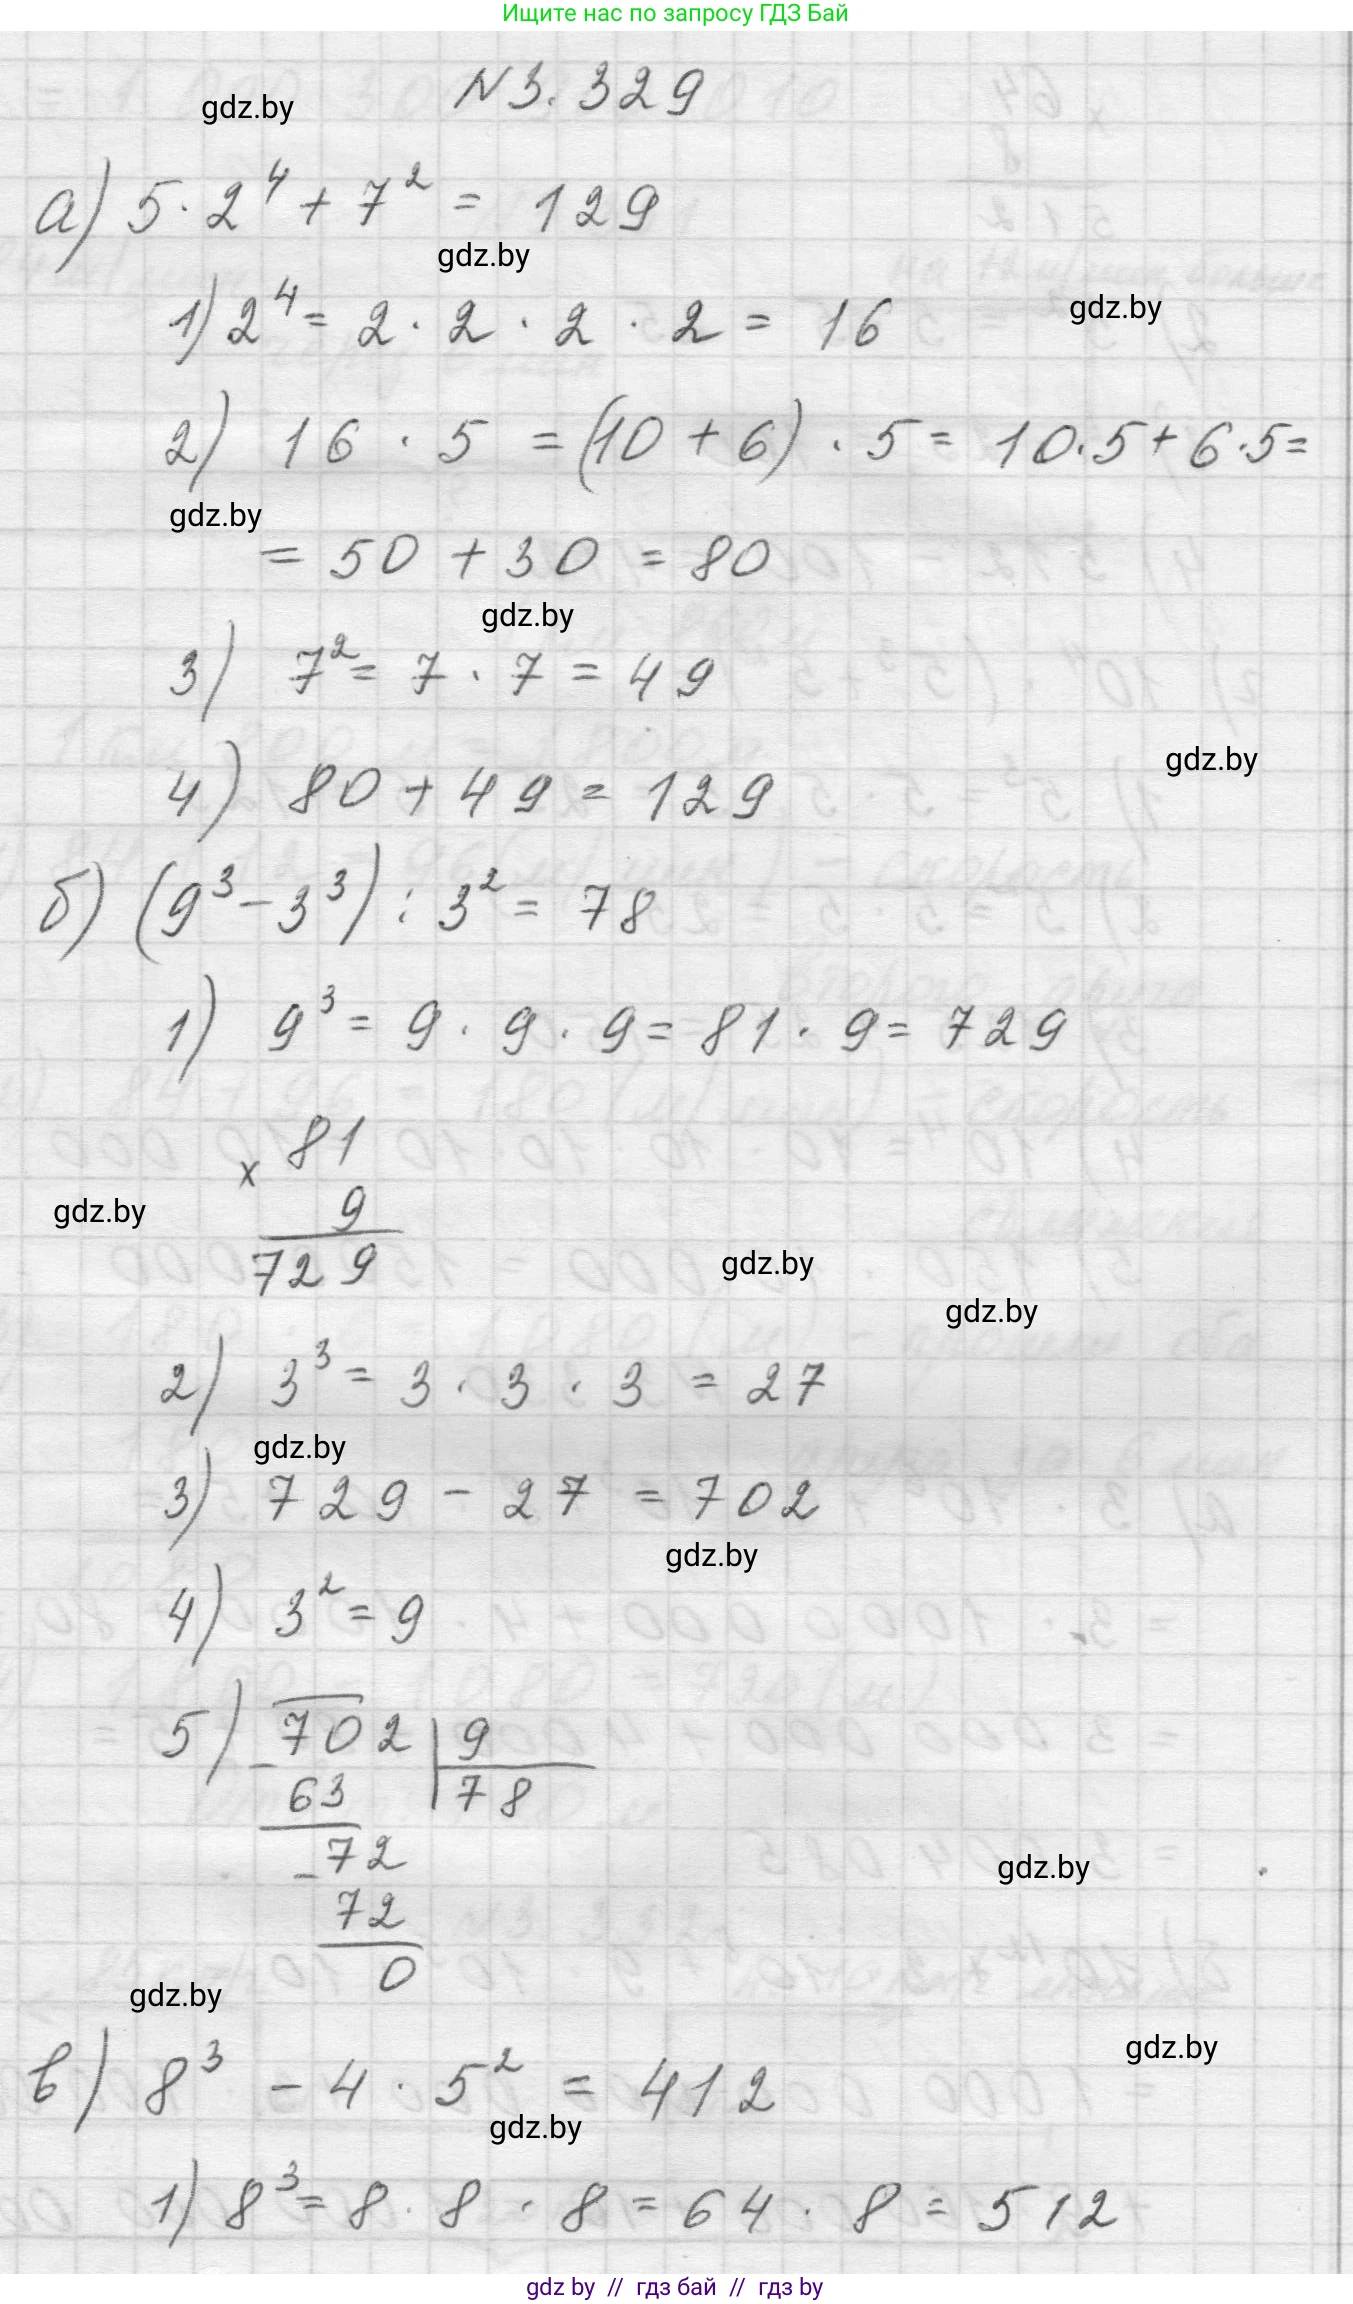 Ищите нас по запросу ГДЗ Бай
N 3.329
gdz.by
а) 5 · 2⁴ + 7² = 129
gdz.by
1) 2⁴ = 2 · 2 · 2 · 2 = 16
gdz.by
2) 16 · 5 = (10 + 6) · 5 = 10 · 5 + 6 · 5 =
gdz.by
= 50 + 30 = 80
gdz.by
3) 7² = 7 · 7 = 49
gdz.by
4) 80 + 49 = 129
б) (9³ - 3³) : 3² = 78
1) 9³ = 9 · 9 · 9 = 81 · 9 = 729
x 81
9
gdz.by
729
gdz.by
gdz.by
2) 3³ = 3 · 3 · 3 = 27
gdz.by
3) 729 - 27 = 702
gdz.by
4) 3² = 9
5) 702 | 9
- 63 78
- 72
gdz.by
72
0
gdz.by
gdz.by
в) 8³ - 4 · 5² = 412
gdz.by
1) 8³ = 8 · 8 · 8 = 64 · 8 = 512
gdz by // гдз бай // гдз by